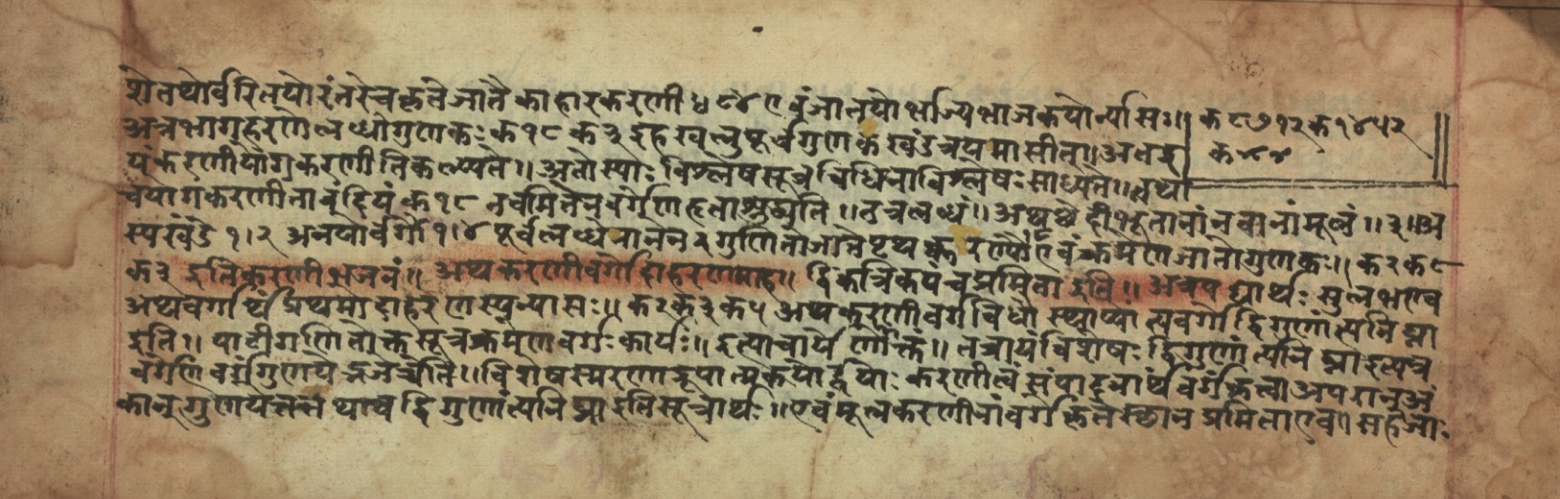 शे तयोर्वर्गितयोरंतरे च कृते जातैका हारकरणी ५८४ एवं जातयोर्भाज्यभाजकयोर्न्यासः ॥ क ८७१२ क १४५२
अत्र भागे हरणे लब्धो गुणकः क १८ क ३ इह खलु पूर्वगुणके खंडत्रयमासीत् ॥ अत इ क ४८४
यं करणी योगकरणीति कल्प्यते ॥ अतोस्याः विश्लेषसूत्रविधिना विश्लेषः साध्यते ॥ तथा
च योगकरणीनाविंदियं क १८ नवमितेन वर्गेण हृता शुद्ध्यति ॥ तत्र लब्धं ॥ अथ द्वे ही १ हृतानां नवानां मूलं ॥ ३ ॥ अ
स्य खंडे १।२ अनयोर्वर्गौ १।४ पूर्वलब्धेनानेन २ गुणितौ जाते पृथक् करण्यौ एवं क्रमेण जातो गुणकः ॥ क २ क ८
क ३ इति करणीभजनं ॥ अथ करणीवर्गोदाहरणमाह ॥ द्विकत्रिकपंचप्रमिता इति ॥ अत्र पद्यार्थः सुलभ एव
अथ वर्गार्थं प्रथमोदाहरणस्य न्यासः ॥ क २ क ३ क ५ अथ करणीवर्गविधौ स्थाप्योंत्यवर्गो द्विगुणांत्यनिघ्ना
इति ॥ पाटीगणितोक्तसूत्रक्रमेण वर्गः कार्यः ॥ इत्याचार्येणोक्तं ॥ तत्रायं विशेषः द्विगुणांत्यनिघ्ना इत्यत्र
वर्गेण वर्गं गुणयेद्भजेच्चेति ॥ विशेषस्मरणाद्रूपात्मकयोर्द्वयोः करणीत्वं संपादनार्थं वर्गं कृत्वा अपरानुअं
कान् गुणयेत्तत्तथाच द्विगुणांत्यनिघ्ना इति सूत्रार्थः ॥ एवं मूलकरणीनां वर्ग कृते स्थान प्रमिता एव ॥ सहजाः